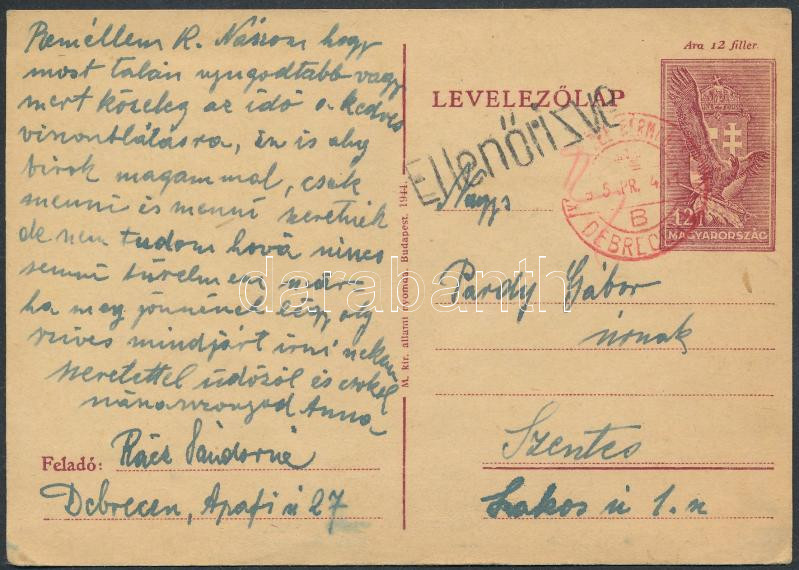 Reméllem K. Nászom hogy
most talán nyugodtabb vagy
mert közeleg az idő a kedves
viszontlátásra, én is alig
birok magammal, csak
menni és menni szeretnék
de nem tudom hová nincs
semmi türelmem már
ha meg jönnének légy oly
szives mindjárt irni nekem
szeretettel üdözöl és csokol
Anna
Feladó: Rácz Sándorné
Debrecen, Apafi u 27
M. kir. állami nyomda, Budapest. 1944.
Ára 12 fillér
LEVELEZŐLAP
Ellenőrizve
DEBRECEN
B
12f
MAGYARORSZÁG
Nags
Pardy Gábor
úrnak
Szentes
Lakos u 1. sz
darabanth